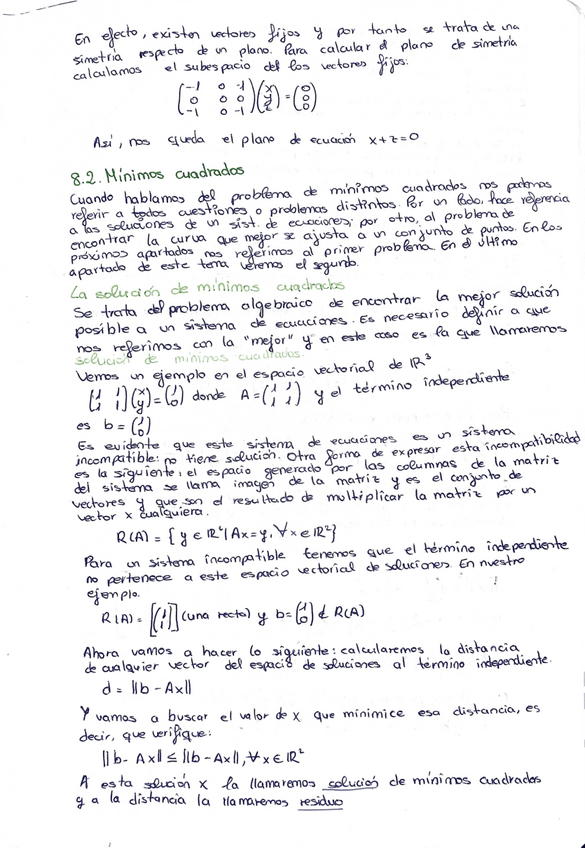 En efecto, existen vectores fijos y por tanto se trata de una
simetría respecto de un plano. Para calcular el plano de simetría
calculamos el subespacio del los vectores fijos:
(-1 0 -1; 0 0 0; -1 0 -1)(x; y; z) = (0; 0; 0)
Así, nos queda el plano de ecuación x+z=0
8.2. Mínimos cuadrados
Cuando hablamos del problema de mínimos cuadrados nos podemos
referir a todos cuestiones o problemas distintos. Por un lado, hace referencia
a las soluciones de un sist. de ecuaciones; por otro, al problema de
encontrar la curva que mejor se ajusta a un conjunto de puntos. En los
próximos apartados nos referimos al primer problema. En el último
apartado de este tema veremos el segundo.
La solución de mínimos cuadrados
Se trata del problema algebraico de encontrar la mejor solución
posible a un sistema de ecuaciones. Es necesario definir a que
nos referimos con la "mejor" y en este caso es la que llamaremos
solución de mínimos cuadrados.
Vemos un ejemplo en el espacio vectorial de IR³
(1 1; 1 1)(x; y) = (1; 0) donde A = (1 1; 1 1) y el término independiente
es b = (1; 0)
Es evidente que este sistema de ecuaciones es un sistema
incompatible: no tiene solución. Otra forma de expresar esta incompatibilidad
es la siguiente: el espacio generado por las columnas de la matriz
del sistema se llama imagen de la matriz y es el conjunto de
vectores y que son el resultado de multiplicar la matriz por un
vector x cualquiera.
R(A) = { y ∈ IR² | Ax = y, ∀x ∈ IR² }
Para un sistema incompatible tenemos que el término independiente
no pertenece a este espacio vectorial de soluciones. En nuestro
ejemplo.
R(A) = [(1; 1)] (una recta) y b = (1; 0) ∉ R(A)
Ahora vamos a hacer lo siguiente: calcularemos la distancia
de cualquier vector del espacio de soluciones al término independiente.
d = ||b - Ax||
Y vamos a buscar el valor de x que minimice esa distancia, es
decir, que verifique:
||b - Ax|| ≤ ||b - Ax||, ∀x ∈ IR²
A esta solución x la llamaremos solución de mínimos cuadrados
y a la distancia la llamaremos residuo